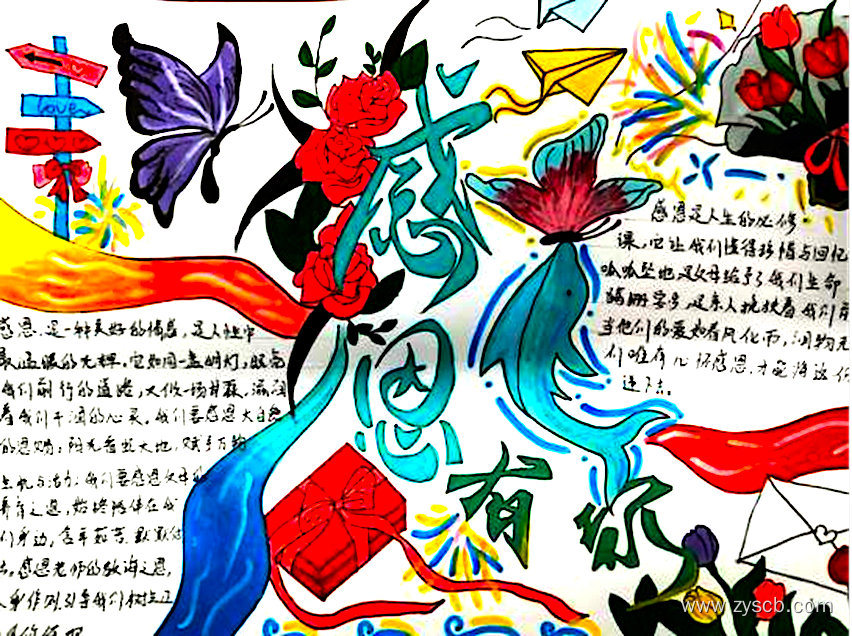 love
感恩
有你
感恩是人生的必修
课，它让我们懂得珍惜与回忆
呱呱坠地是父母给予了我们生命
蹒跚学步，是亲人搀扶着我们
当他们的爱如春风化雨，润物无
们唯有心怀感恩，才能将这份
递下去。
感恩，是一种美好的情感，是人性中
最温暖的光辉。它如同一盏明灯，照亮
我们前行的道路，又似一场甘霖，滋润
着我们干涸的心灵。我们要感恩大自然
的恩赐：阳光普照大地，赋予万物
生机与活力；我们要感恩父母的
养育之恩，始终陪伴在我
们身边，含辛茹苦，默默付
出。感恩老师的教诲之恩，
人
www.zyscb.com